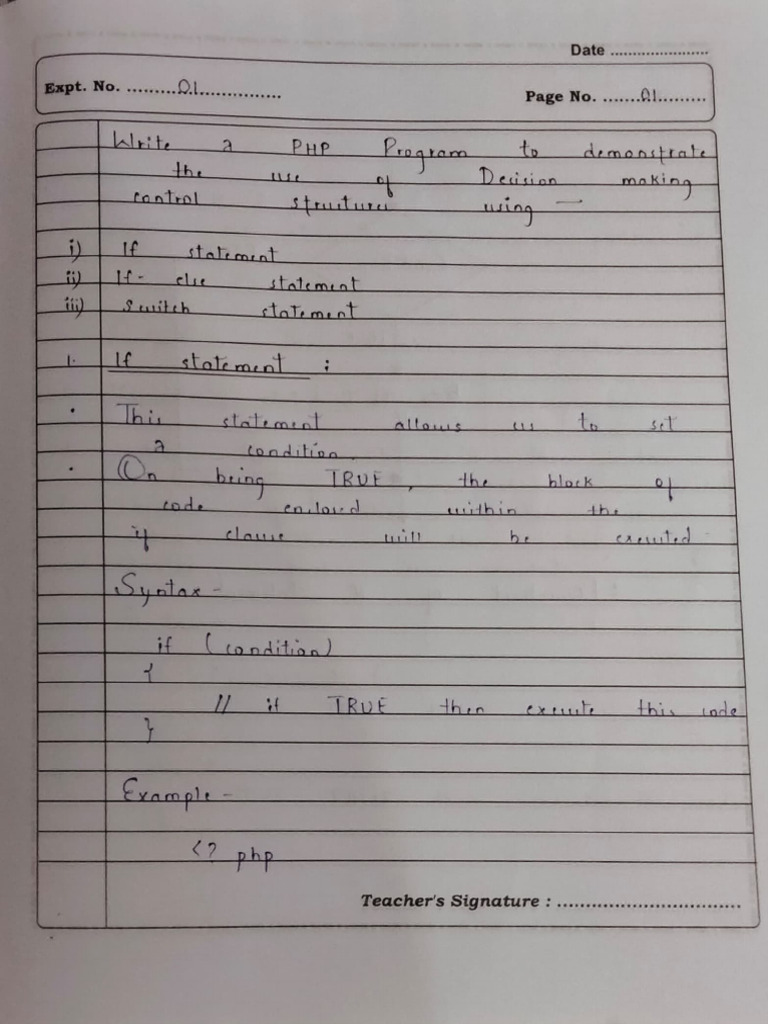 Date ........................
Expt. No. .........01...............
Page No. .......01.........
Write a PHP Program to demonstrate
the use of Decision making
control structures using —
i) If statement
ii) If- else statement
iii) Switch statement
1. If statement :
• This statement allows us to set
a condition.
• On being TRUE, the block of
code enclosed within the
if clause will be executed
Syntax -
if (condition)
{
// if TRUE then execute this code
}
Example -
<? php
Teacher's Signature : ................................